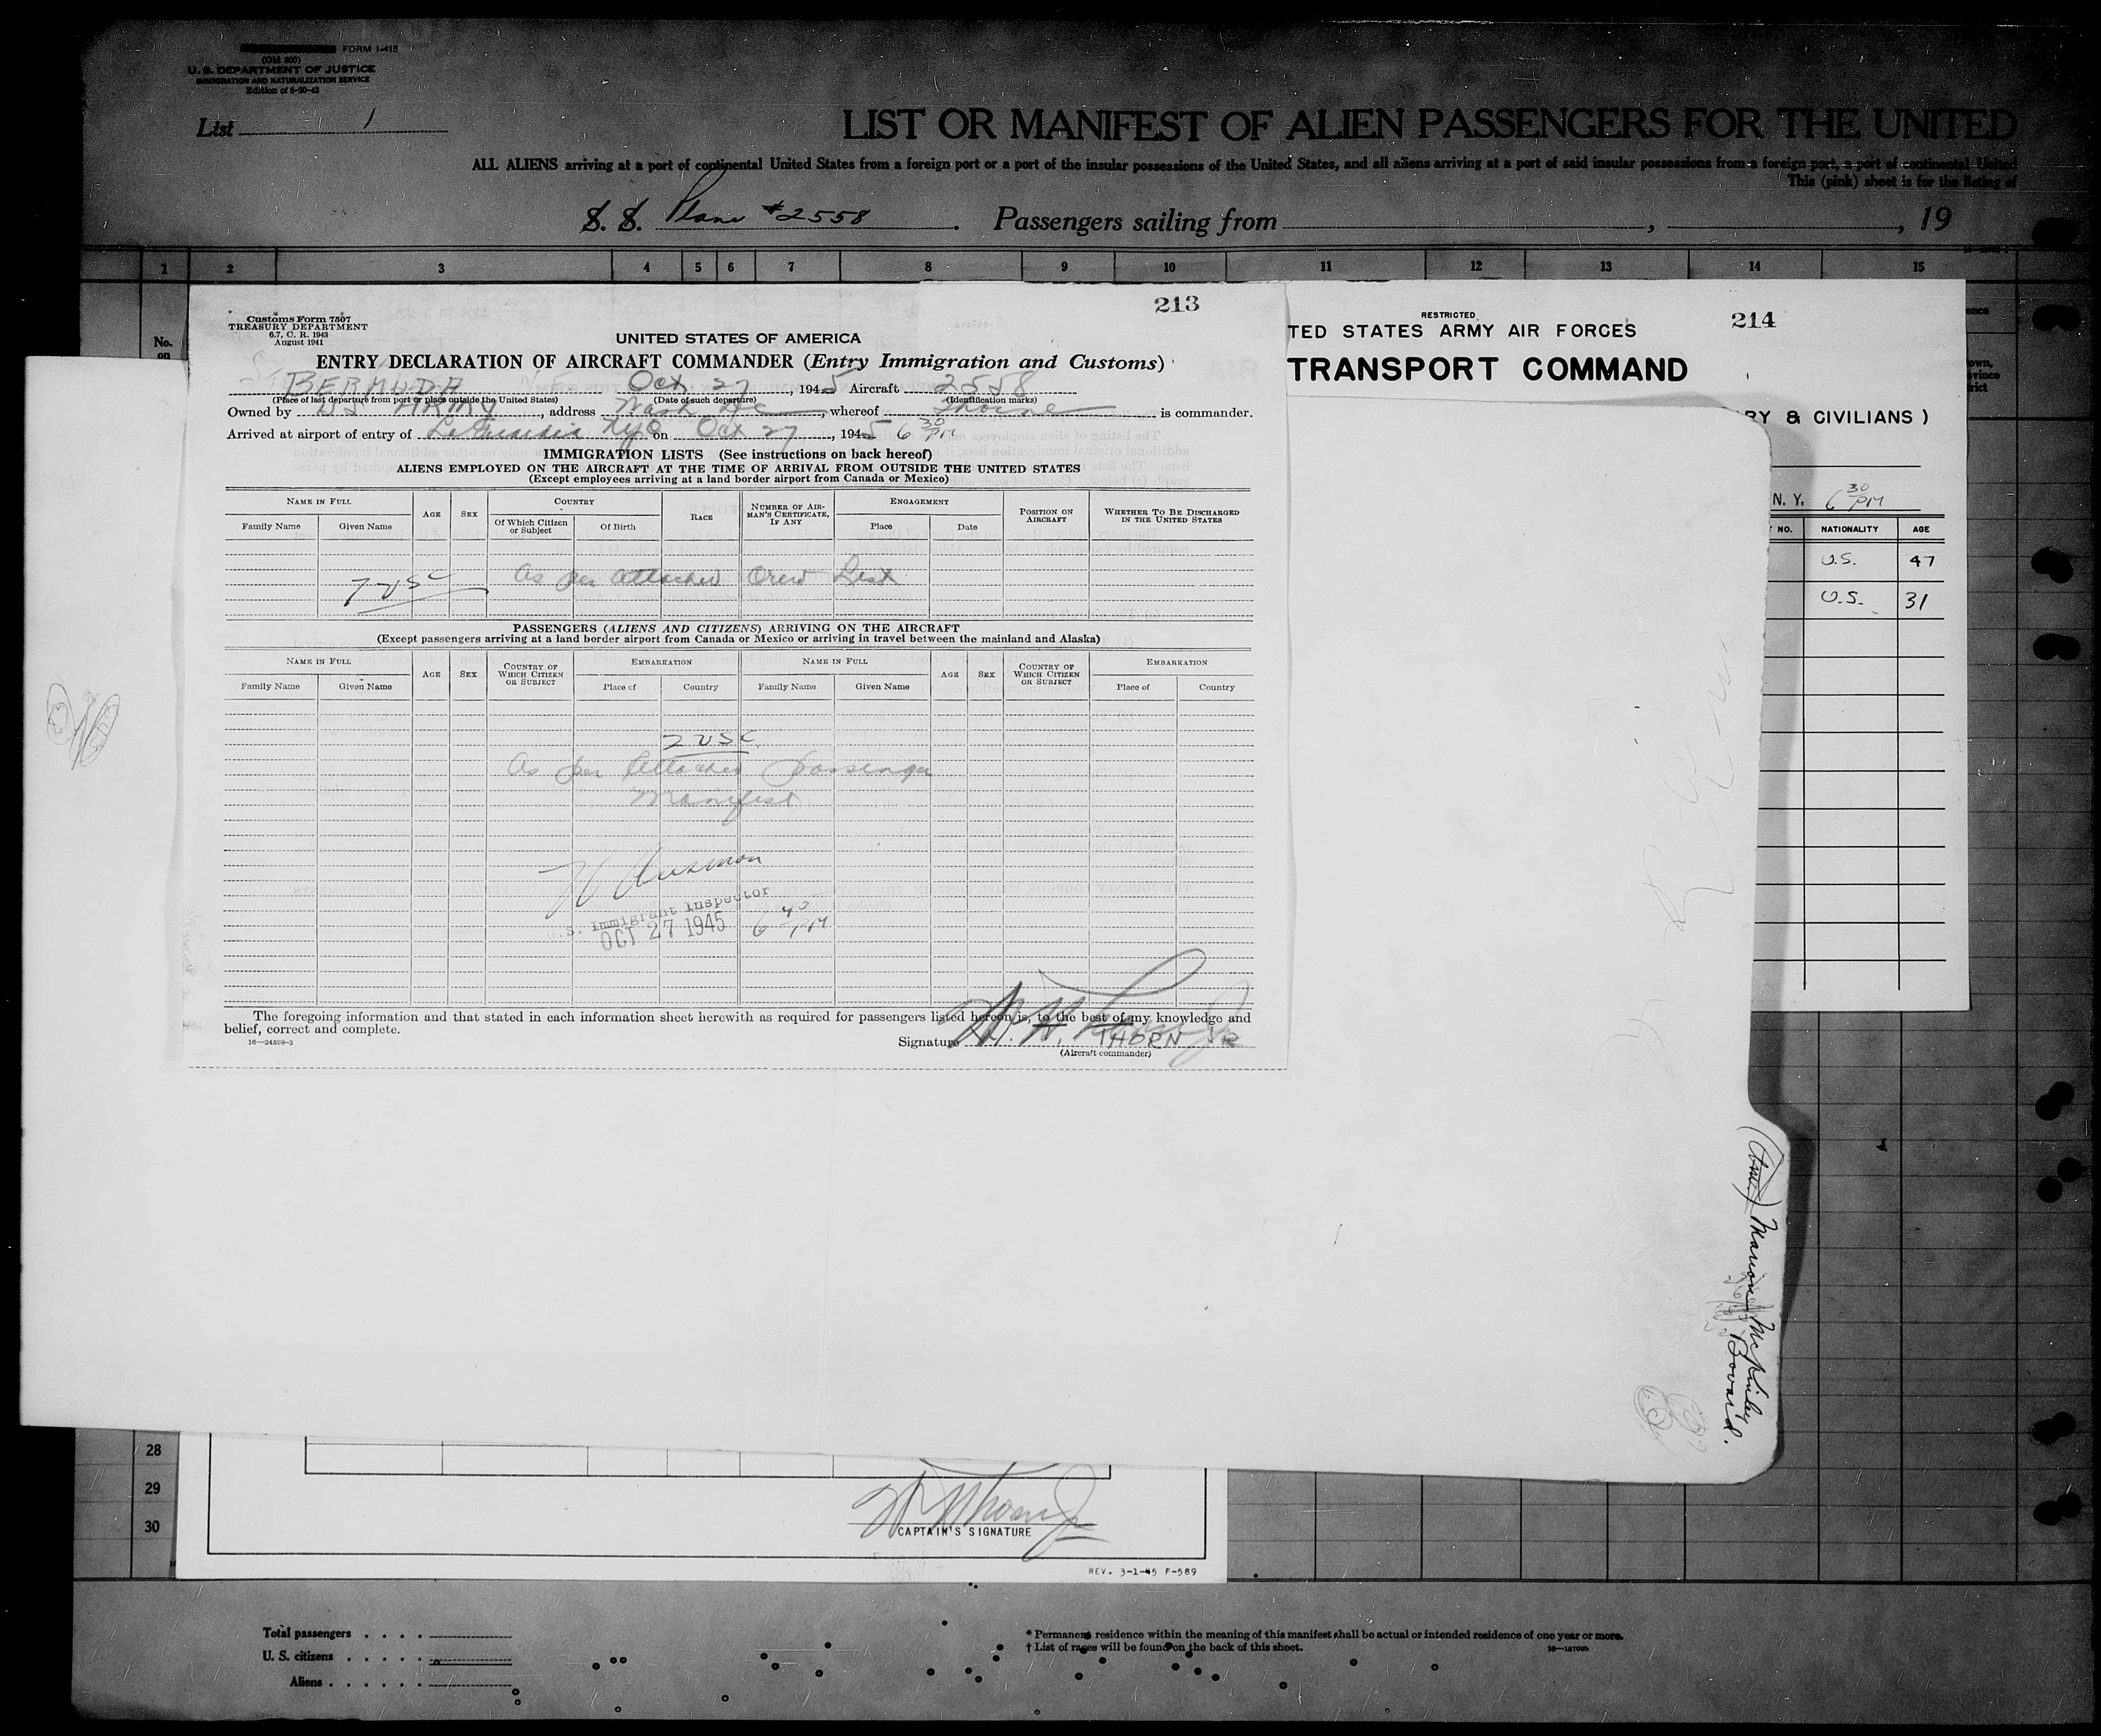 FORM I-415
(Old 500)
U. S. DEPARTMENT OF JUSTICE
IMMIGRATION AND NATURALIZATION SERVICE
Edition of 6-20-43
List 1
LIST OR MANIFEST OF ALIEN PASSENGERS FOR THE UNITED
ALL ALIENS arriving at a port of continental United States from a foreign port or a port of the insular possessions of the United States, and all aliens arriving at a port of said insular possessions from a foreign port, a port of continental United
This (pink) sheet is for the listing of
S. S. Plane #2558. Passengers sailing from , , 19
1 2 3 4 5 6 7 8 9 10 11 12 13 14 15
No.
on
213
Customs Form 7507
TREASURY DEPARTMENT
6.7, C. R. 1943
August 1941
UNITED STATES OF AMERICA
ENTRY DECLARATION OF AIRCRAFT COMMANDER (Entry Immigration and Customs)
BERMUDA Oct 27, 1945 Aircraft 2558
(Place of last departure from port or place outside the United States) (Date of such departure) (Identification marks)
Owned by US ARMY, address Wash DC, whereof Thorne is commander.
Arrived at airport of entry of LaGuardia NYC on Oct 27, 1945 6 30 PM
IMMIGRATION LISTS (See instructions on back hereof)
ALIENS EMPLOYED ON THE AIRCRAFT AT THE TIME OF ARRIVAL FROM OUTSIDE THE UNITED STATES
(Except employees arriving at a land border airport from Canada or Mexico)
NAME IN FULL AGE SEX COUNTRY RACE NUMBER OF AIRMAN'S CERTIFICATE, IF ANY ENGAGEMENT POSITION ON AIRCRAFT WHETHER TO BE DISCHARGED IN THE UNITED STATES
Family Name Given Name Of Which Citizen or Subject Of Birth Place Date
7 USC As per attached Crew List
PASSENGERS (ALIENS AND CITIZENS) ARRIVING ON THE AIRCRAFT
(Except passengers arriving at a land border airport from Canada or Mexico or arriving in travel between the mainland and Alaska)
NAME IN FULL AGE SEX COUNTRY OF WHICH CITIZEN OR SUBJECT EMBARKATION NAME IN FULL AGE SEX COUNTRY OF WHICH CITIZEN OR SUBJECT EMBARKATION
Family Name Given Name Place of Country Family Name Given Name Place of Country
2 USC
As per Attached passenger
Manifest
U.S. Immigrant Inspector
OCT 27 1945 6 40 PM
The foregoing information and that stated in each information sheet herewith as required for passengers listed hereon is, to the best of my knowledge and
belief, correct and complete.
16—24598-3
Signature THORN JR
(Aircraft commander)
RESTRICTED
214
TED STATES ARMY AIR FORCES
TRANSPORT COMMAND
RY & CIVILIANS )
N. Y. 6 30 PM
NO. NATIONALITY AGE
U.S. 47
U.S. 31
Marion
Bovard.
28
29
30
CAPTAIN'S SIGNATURE
REV. 3-1-45 F-589
Total passengers
U. S. citizens
Aliens
* Permanent residence within the meaning of this manifest shall be actual or intended residence of one year or more.
† List of races will be found on the back of this sheet.